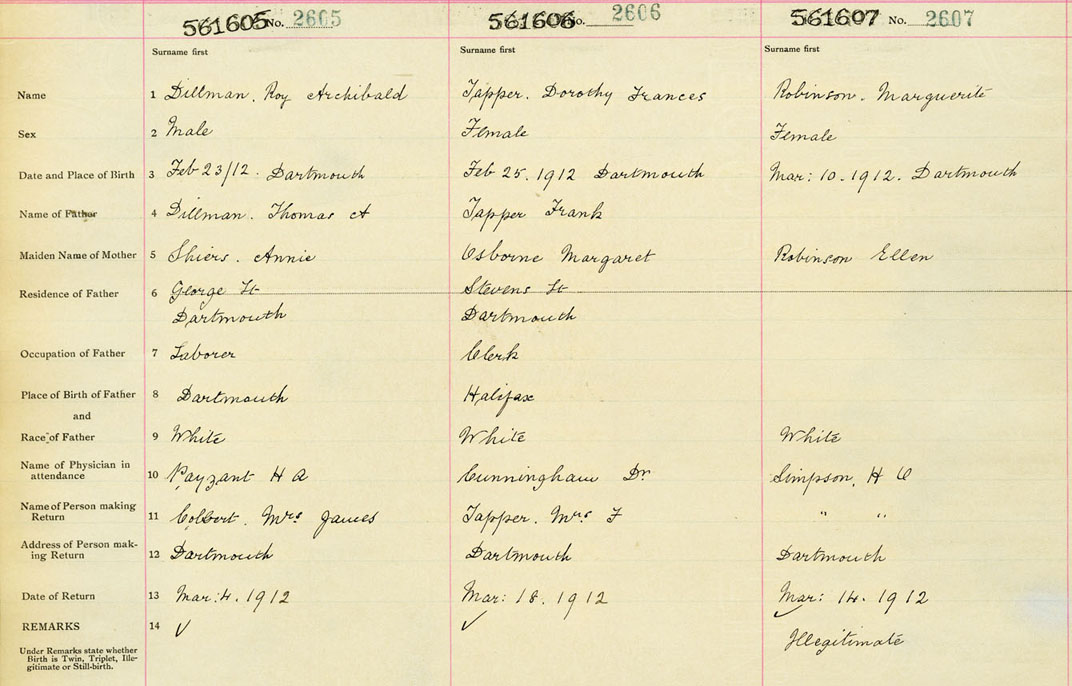 561605 No. 2605 561606 No. 2606 561607 No. 2607
Surname first Surname first Surname first
Name 1 Dillman. Roy Archibald Tapper. Dorothy Frances Robinson. Marguerite
Sex 2 Male Female Female
Date and Place of Birth 3 Feb 23/12. Dartmouth Feb 25. 1912 Dartmouth Mar: 10. 1912. Dartmouth
Name of Father 4 Dillman. Thomas A Tapper Frank
Maiden Name of Mother 5 Shiers. Annie Osborne Margaret Robinson Ellen
Residence of Father 6 George St Stevens St
Dartmouth Dartmouth
Occupation of Father 7 Laborer Clerk
Place of Birth of Father 8 Dartmouth Halifax
and
Race of Father 9 White White White
Name of Physician in
attendance 10 Payzant H A Cunningham Dr Simpson, H C
Name of Person making
Return 11 Colbert. Mrs James Tapper. Mrs F " "
Address of Person mak-
ing Return 12 Dartmouth Dartmouth Dartmouth
Date of Return 13 Mar: 4. 1912 Mar: 18. 1912 Mar: 14. 1912
REMARKS 14 ✓ ✓ ✓
Illegitimate
Under Remarks state whether
Birth is Twin, Triplet, Ille-
gitimate or Still-birth.